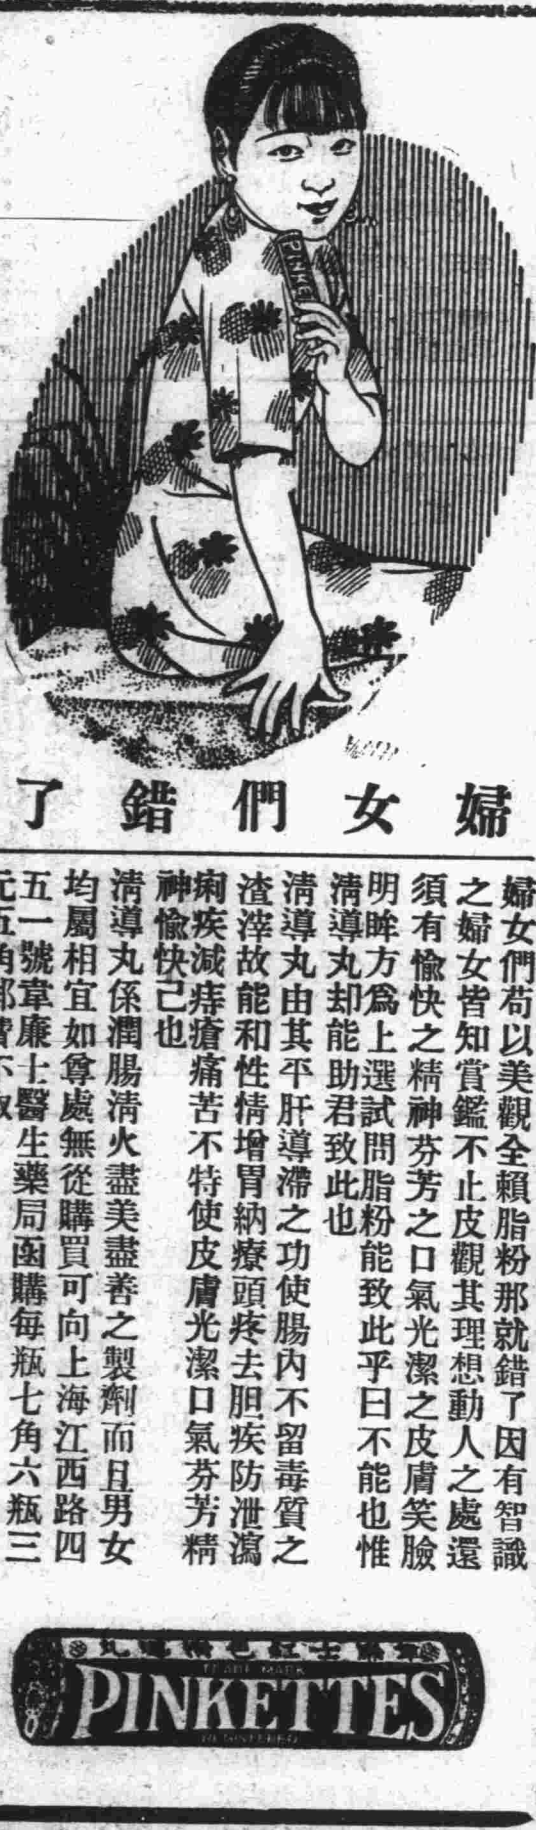 PINKE
婦女們錯了
婦女們苟以美觀全賴脂粉那就錯了因有智識
之婦女皆知賞鑑不止皮觀其理想動人之處還
須有愉快之精神芬芳之口氣光潔之皮膚笑臉
明眸方爲上選試問脂粉能致此乎曰不能也惟
淸導丸却能助君致此也
淸導丸由其平肝導滯之功使腸內不留毒質之
渣滓故能和性情增胃納療頭疼去胆疾防泄瀉
痢疾減痔瘡痛苦不特使皮膚光潔口氣芬芳精
神愉快己也
淸導丸係潤腸淸火盡美盡善之製劑而且男女
均屬相宜如尊處無從購買可向上海江西路四
五一號韋廉士醫生藥局函購每瓶七角六瓶三
元五角郵費不取
TRADE MARK
PINKETTES
REGISTERED